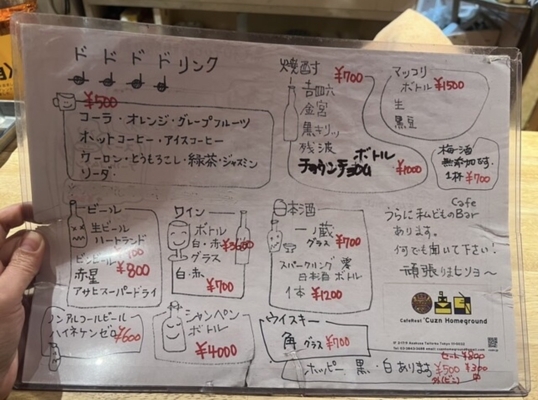 ド ド ド ドリンク
¥500
コーラ・オレンジ・グレープフルーツ
ホットコーヒー・アイスコーヒー
ウーロン・とうもろこし・緑茶・ジャスミン
ソーダ
焼酎
¥700
吉四六
金宮
黒キリッ
残波
チョウンチョロム ボトル ¥1000
マッコリ
ボトル ¥1500
生
黒豆
梅酒
無添加です。
1杯 ¥700
ビール
生ビール
ハートランド
ビンビール
赤星 ¥800
アサヒスーパードライ
ワイン
ボトル
白・赤
グラス
白・赤
¥700
日本酒
一ノ蔵
グラス ¥700
スパークリング 澪
日本酒 ボトル
1本 ¥1200
Cafe
うらに私どものBar
あります。
何でも聞いて下さい!
頑張りまヒョ〜
CafeRest 'Cuzn Homeground
ノンアルコールビール
ハイネケンゼロ ¥600
シャンペン
ボトル
¥4000
ウイスキー
角 グラス ¥700
セット ¥800
ホッピー 黒・白 あります ¥500 ¥300